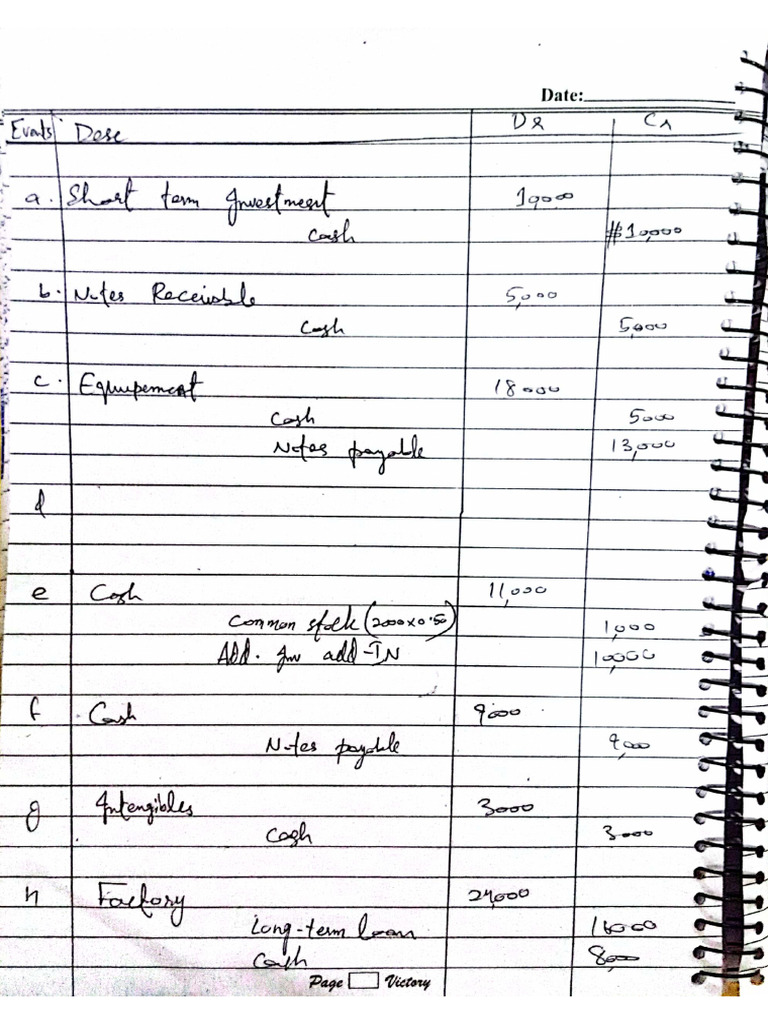 Date:
Events Desc Dr Cr
a. Short term Investment 10000
Cash $10,000
b. Notes Receivable 5,000
Cash 5,000
c. Equupement 18000
Cash 5000
Notes payable 13,000
d
e Cash 11,000
Common stock (2000x0.50) 1,000
Add. Inv add-IN 10000
f Cash 9000
Notes payable 9,000
g Intengibles 3000
Cash 3000
h Factory 24,000
Long-term loan 16000
Cash 8000
Page Victory